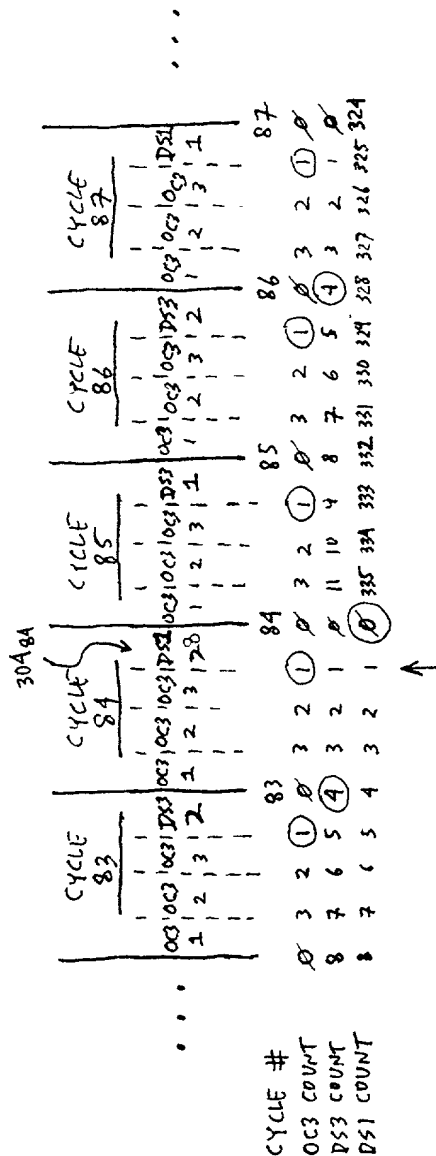 304 84
CYCLE 83 CYCLE 84 CYCLE 85 CYCLE 86 CYCLE 87
... OC3 OC3 OC3 DS3 OC3 OC3 OC3 DS1 OC3 OC3 OC3 DS3 OC3 OC3 OC3 DS3 OC3 OC3 OC3 DS1 ...
1 2 3 2 1 2 3 28 1 2 3 1 1 2 3 2 1 2 3 1
CYCLE # 83 84 85 86 87
OC3 COUNT Ø 3 2 1 Ø 3 2 1 Ø 3 2 1 Ø 3 2 1 Ø 3 2 1 Ø
DS3 COUNT 8 7 6 5 4 3 2 1 Ø 11 10 9 8 7 6 5 4 3 2 1 Ø
DS1 COUNT 8 7 6 5 4 3 2 1 Ø 335 334 333 332 331 330 329 328 327 326 325 324